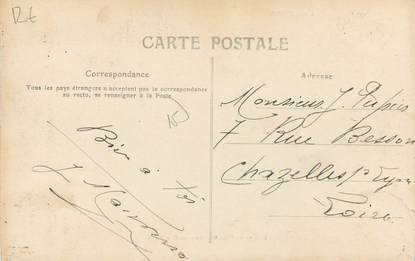 CARTE POSTALE
Correspondance
Tous les pays étrangers n'acceptent pas la correspondance
au recto, se renseigner à la Poste.
Bien à toi
Adresse
Monsieur J. Pupier
7 Rue Besson
Chazelles s/ Lyon
Loire